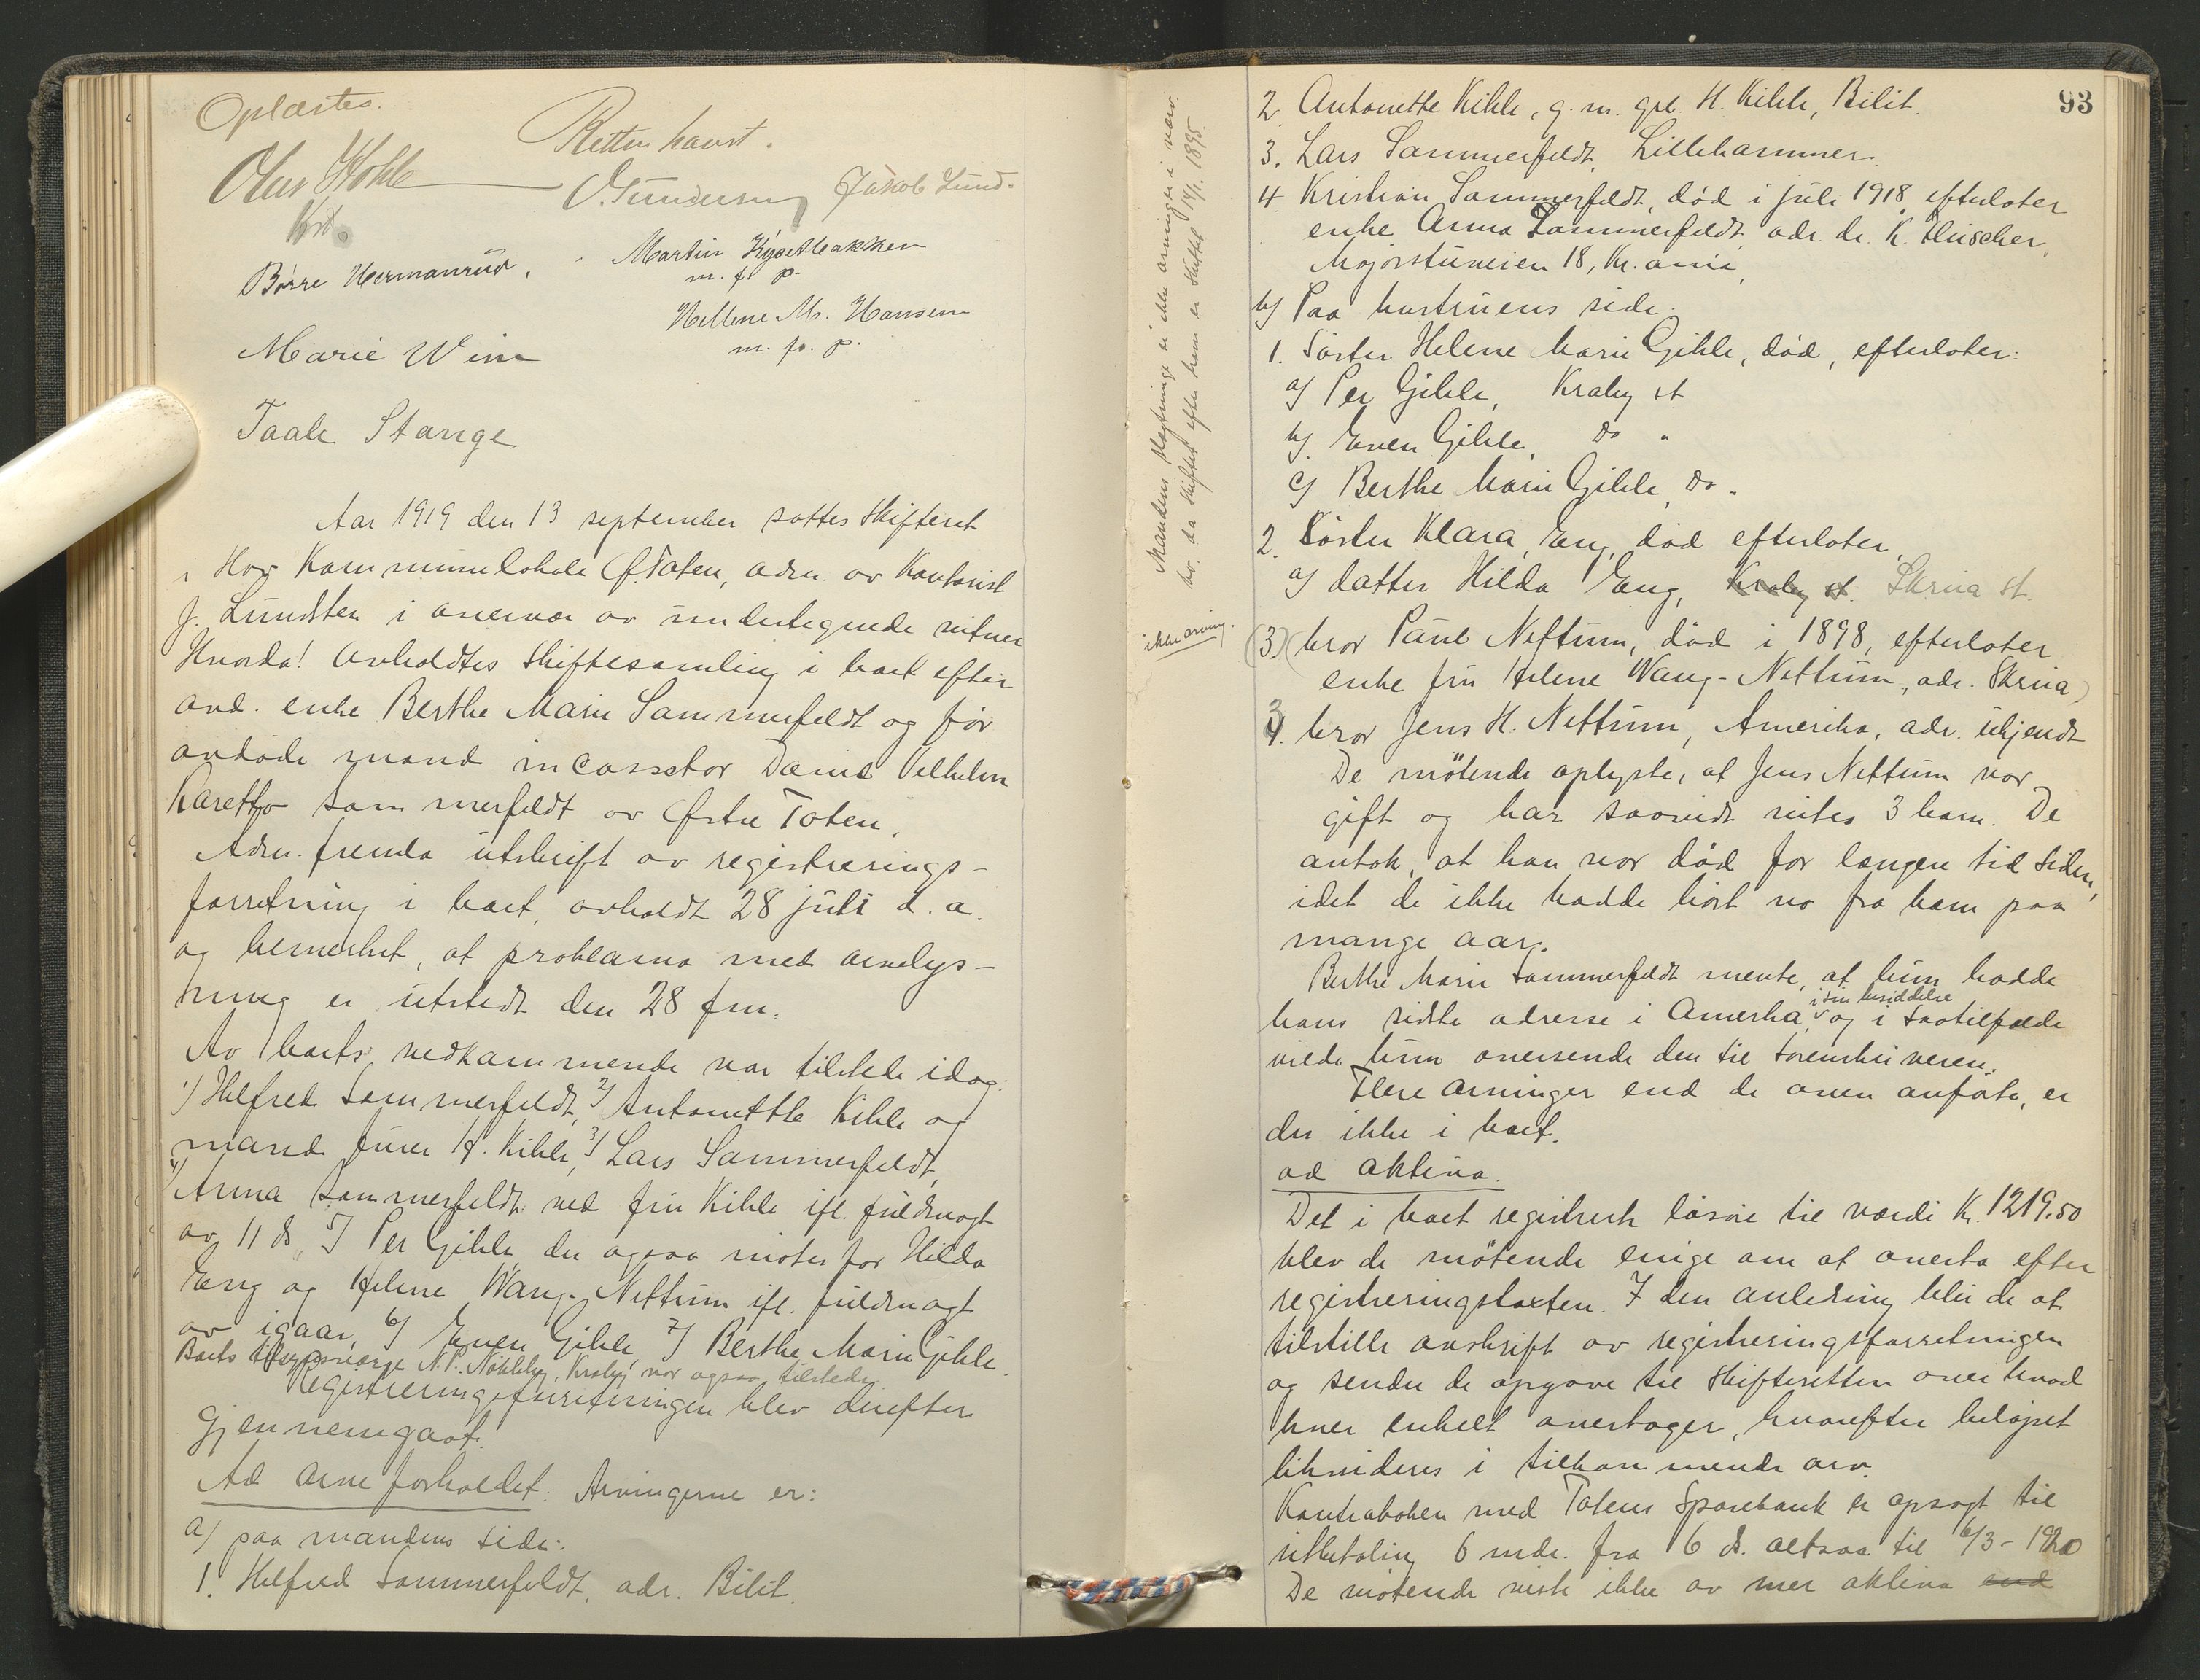 Oplæstes.
Retten hævet.
Olus Kohle
O. Gundersen
Jakob Lund.
Børre Hermanrud.
Martin
m. f. p.
Hellene M. Hansen
m. f. p.
Marie Wiin
Taale Stange
Aar 1919 den 13 september sattes Skifteret
i Hov Kommunelokale Ø. Toten, adm. av Kontorist
J. Lundsten i overvær av undertegnede vitner
Hvorda! Avholdtes Skiftesamling i boet efter
avd. enke Berthe Marie Sommerfeldt og før
avdøde mand incassator Daniel Vilhelm
Sommerfeldt av Østre Toten.
Adm. fremla utskrift av registrerings-
forretning i boet, avholdt 28 juli d. a.
og bemerket, at proklama med arvelys-
ning er utstedt den 28 f.m.
Av boets vedkommende var tilstede idag:
1) Helfred Sommerfeldt, 2) Antonette Kihle og
mand H. Kihle, 3) Lars Sommerfeldt,
4) Anna Sommerfeldt ved fru Kihle ifl. fuldmagt
av 11 ds. 5) Per Gihle der ogsaa møter for Hilda
Eng og Helene Wang-Nettum ifl. fuldmagt
av igaar, 6) Even Gihle 7) Berthe Marie Gihle.
Boets tilsynsværge N. P. Nøkleby, Kraby, var ogsaa tilstede.
Registreringsforretningen blev derefter
gjennemgaat.
Ad arveforholdet: Arvingerne er:
a) paa mandens side:
1. Helfred Sommerfeldt, adr. Bilit.
93
2. Antonette Kihle, g. m. grb. H. Kihle, Bilit.
3. Lars Sommerfeldt, Lillehammer.
4. Kristian Sommerfeldt, død i juli 1918, efterlater
enke Anna Sommerfeldt, adr. dr. K.
Majorstuveien 18, Kr.ania,
b) Paa hustruens side.
1. Søster Helene Marie Gihle, død, efterlater:
a) Per Gihle, Kraby st
b) Even Gihle, Do "
c) Berthe Marie Gihle, Do "
2. Søster Klara Eng, død efterlater,
a) datter Hilda Eng, Kraby st. Skreia st.
(3.) (bror Paul Nettum, død i 1898, efterlater
enke fru Helene Wang-Nettum, adr. Skreia)
3 4. bror Jens H. Nettum, Amerika, adr. ukjendt
De møtende oplyste, at Jens Nettum var
gift og har saavidt vites 3 barn. De
antok, at han var død for længere tid siden,
idet de ikke hadde hørt no fra ham paa
mange aar.
Berthe Marie Sommerfeldt mente, at hun hadde
i sin besiddelse
hans sidste adresse i Amerika, og i saatilfælde
vilde hun oversende den til sorenskriveren.
Flere arvinger end de oven anførte, er
der ikke i boet.
ad aktiva.
Det i boet registrerte løsøre til værdi Kr. 1219.50
blev de møtende enige om at overta efter
registreringstaxten. I den anledning blir de at
tilstille avskrift av registreringsforretningen
og sender de opgave til Skifteretten over hvad
hver enkelt overtager, hvorefter beløpet
likvideres i tilkommende arv.
Kontraboken med Totens Sparebank er opsagt til
utbetaling 6 mdr. fra 6 ds. altsaa til 6/3 - 1920
De møtende visste ikke av mer aktiva end
Mandens slegtninge er ikke arvinger i nærv.
bo, da skiftet efter ham er sluttet 14/1. 1895.
ikke arving.